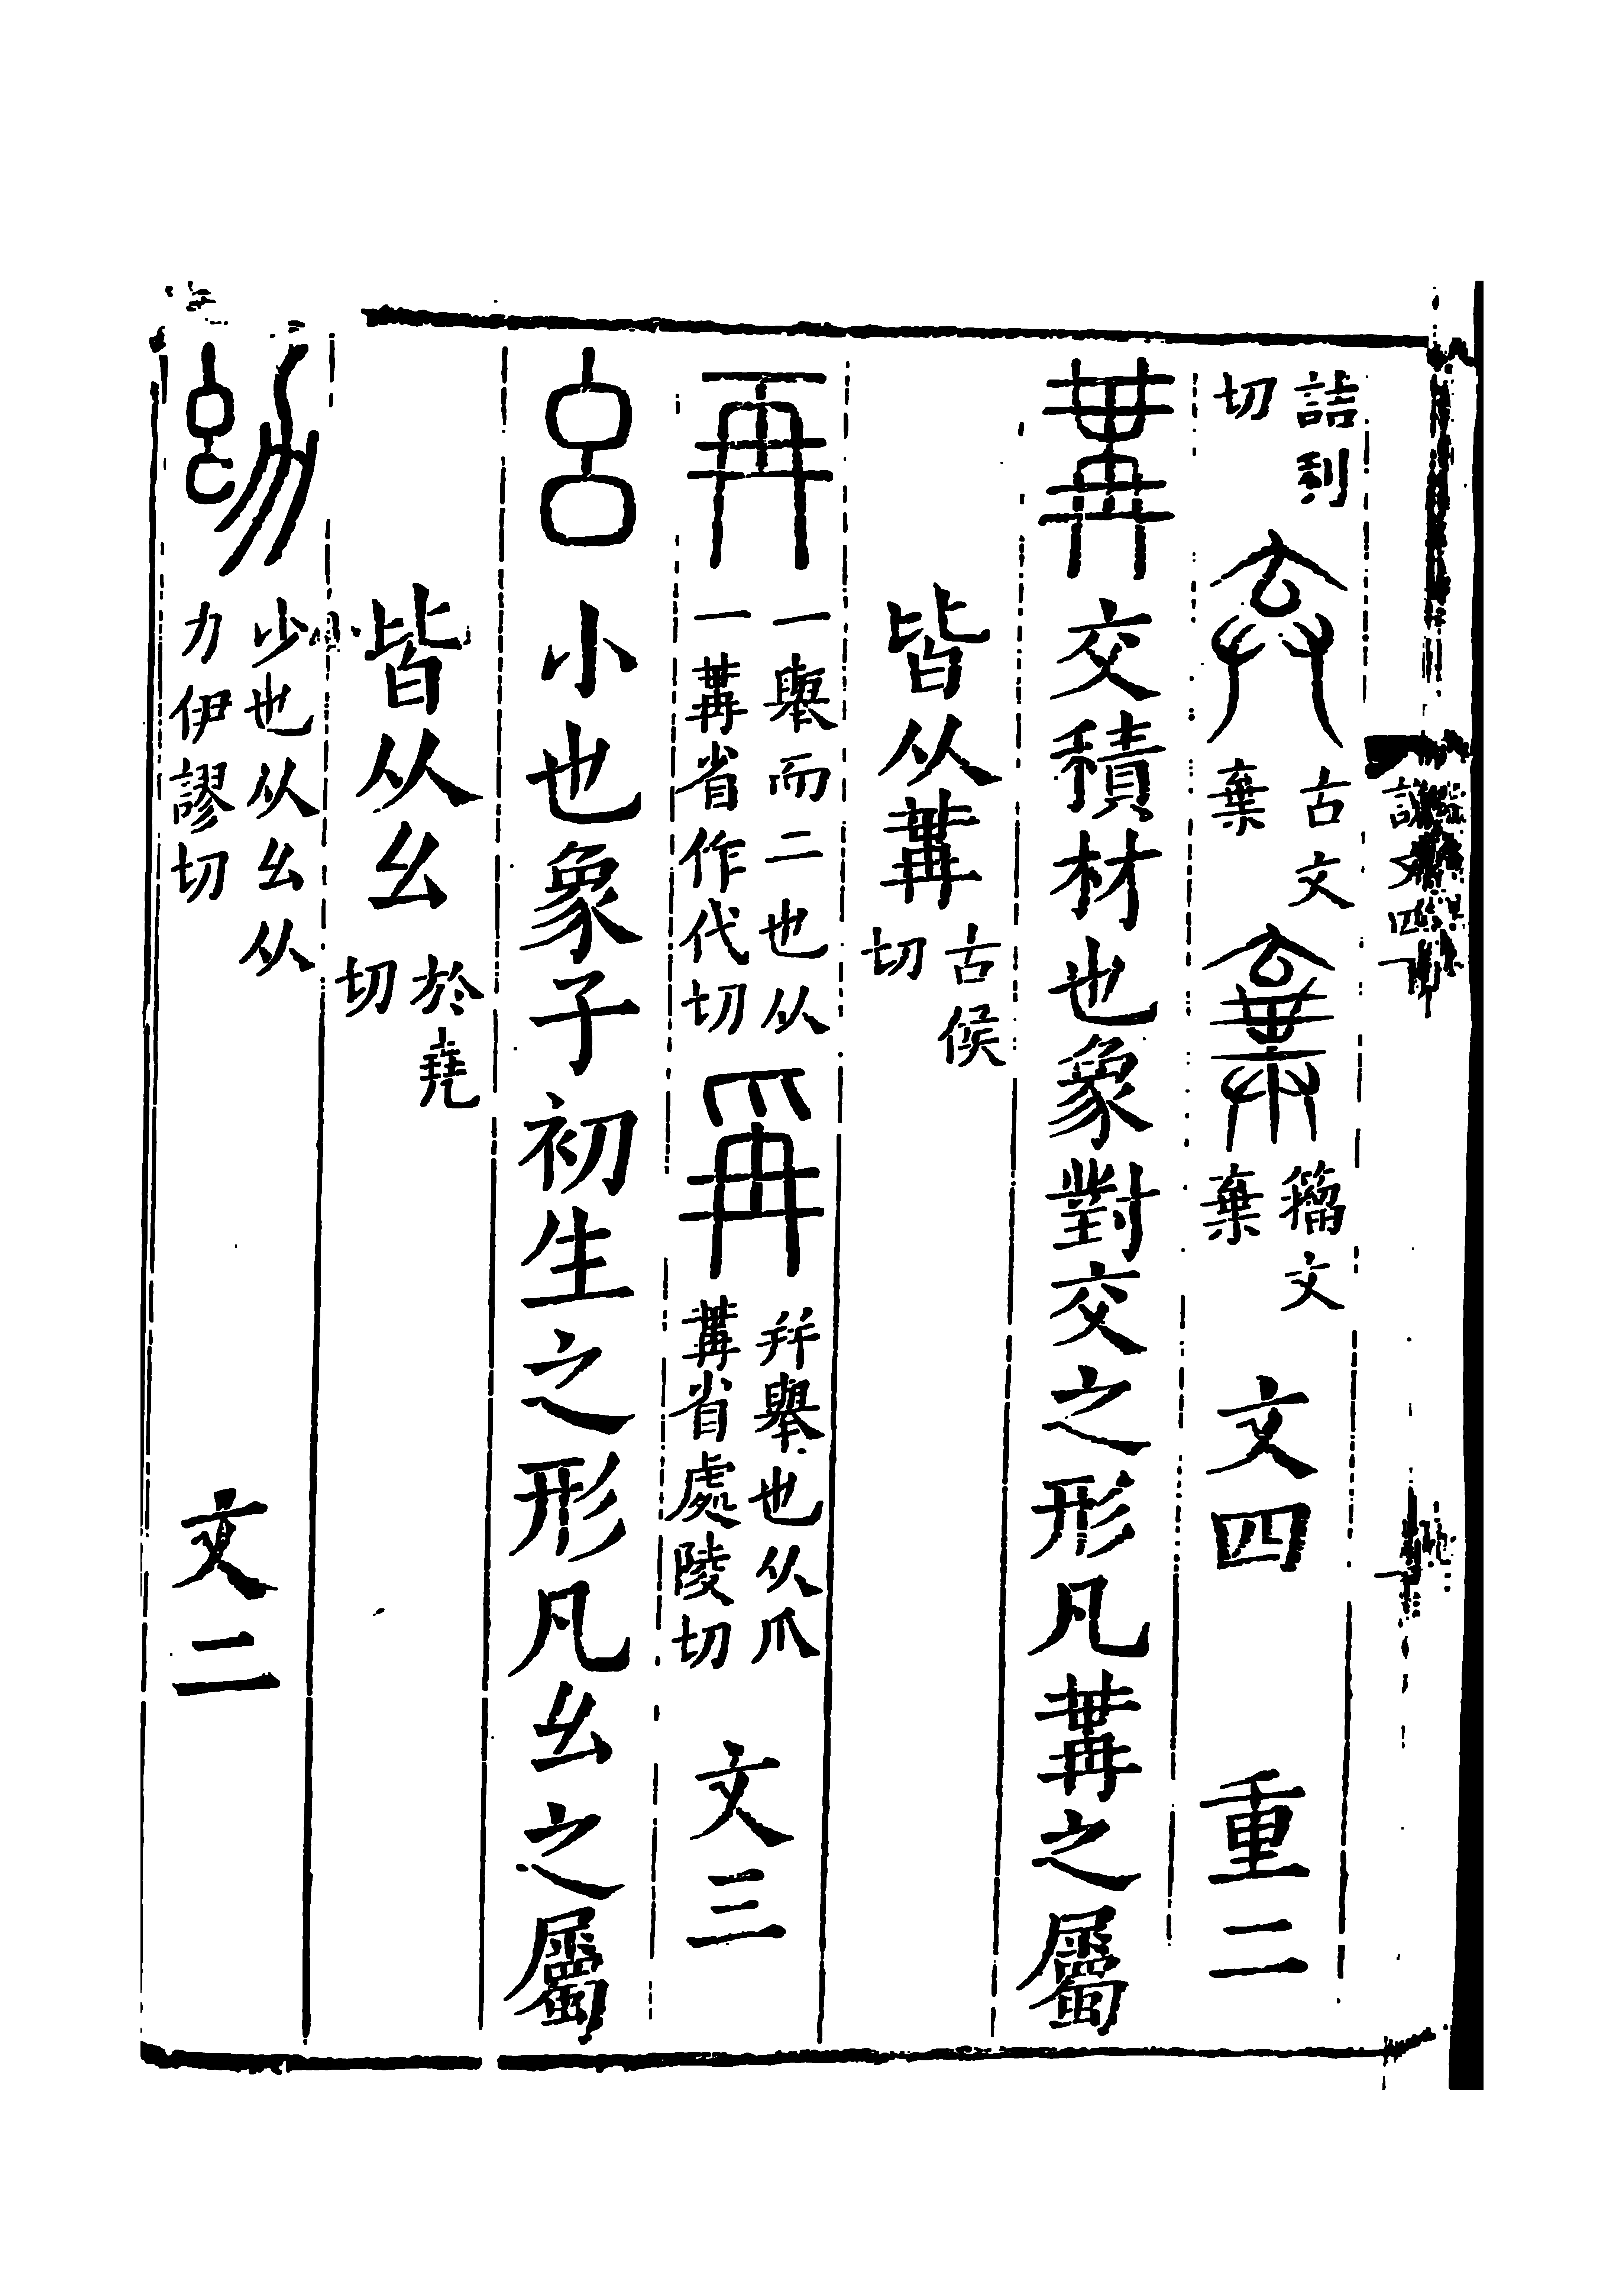 詰利切 𠔉 古文棄 𣓤 籀文棄 文四 重二
冓 交積材也象對交之形凡冓之屬
皆从冓 古候切
再 一舉而二也从一冓省作代切 爯 幷舉也从爪冓省處陵切 文三
幺 小也象子初生之形凡幺之屬
皆从幺 於堯切
幼 少也从幺从力伊謬切 文二